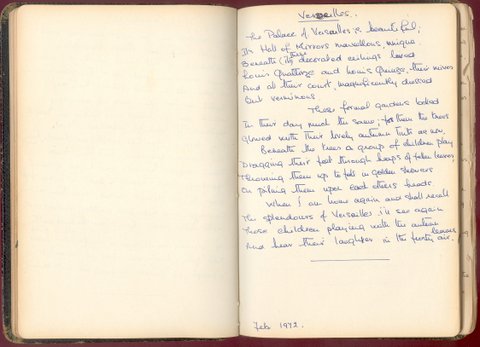 Versailles.
The Palace of Versailles is beautiful,
Its Hall of Mirrors marvellous, unique.
Beneath these decorated ceilings lived
Louis Quatorze and Louis Quinze, their wives
And all their court, magnificently dressed
But verminous
These formal gardens looked
In their day much the same; for them the trees
Glowed with their lovely autumn tints as now.
Beneath the trees a group of children play
Dragging their feet through heaps of fallen leaves
Throwing them up to fall in golden showers
Or piling them upon each others heads.
When I am home again and shall recall
The splendours of Versailles I'll see again
These children playing with the autumn leaves
And hear their laughter in the frosty air.
Feb 1972.